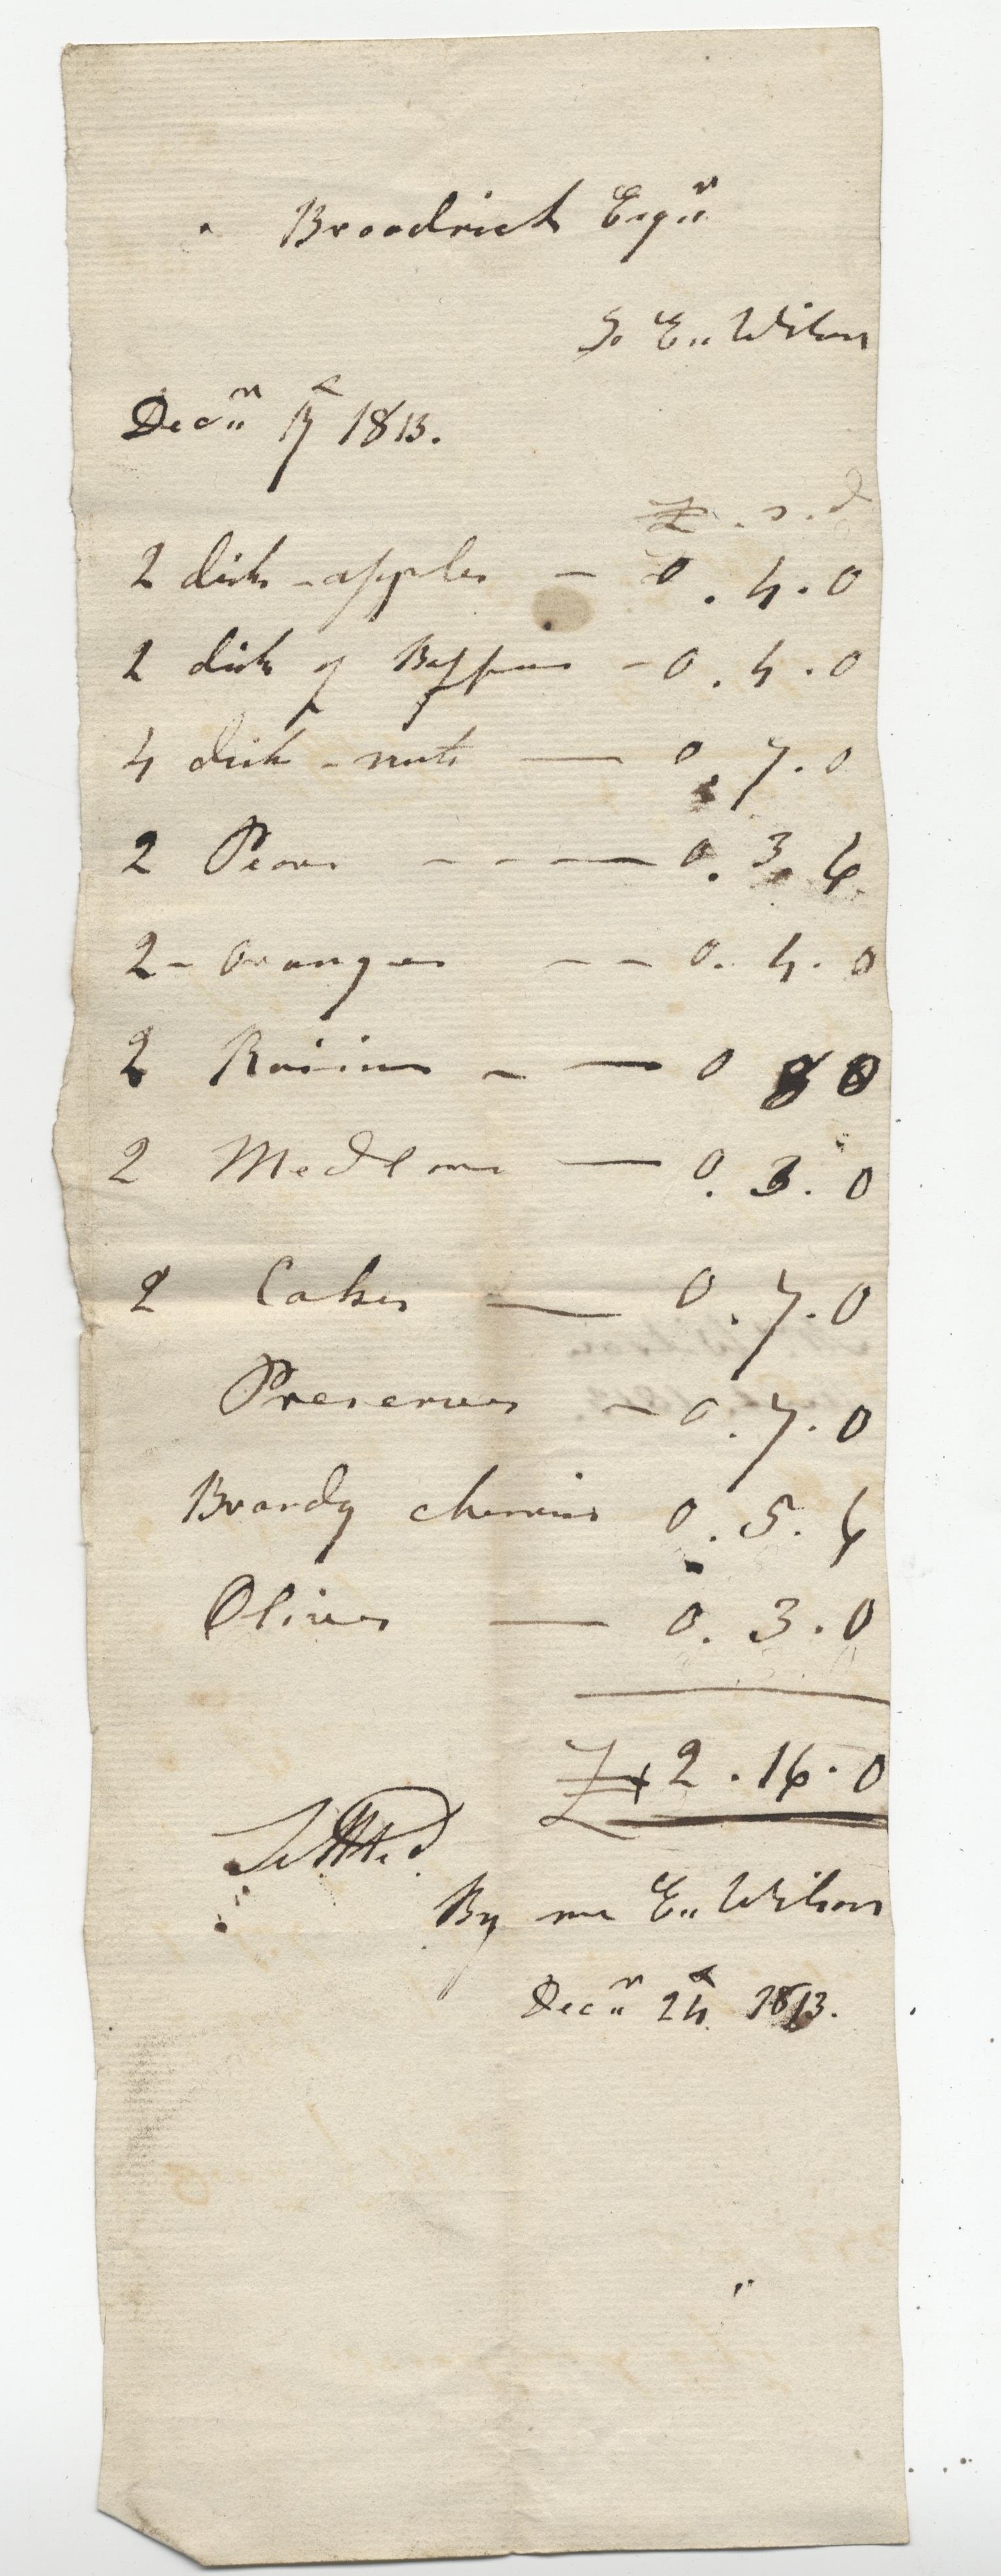 Broodrick Esqr
To E,, Wilson
Decr 17 1813.
£ . s . d
2 dish - apples — 0 . 4 . 0
2 dish of — 0 . 4 . 0
4 dish - nuts — 0 . 7 . 0
2 Pears - - — 0 . 3 . 6
2 - Oranges - - 0 . 4 . 0
2 Raisins - — 0 8 0
2 Medlars — 0 . 3 . 0
2 Cakes — 0 . 7 . 0
Preserves - 0 . 7 . 0
Brandy cherries 0 . 5 . 6
Olives — 0 . 3 . 0
£ 2 . 16 . 0
Settled
By me E,, Wilson
Decr 24 1813.